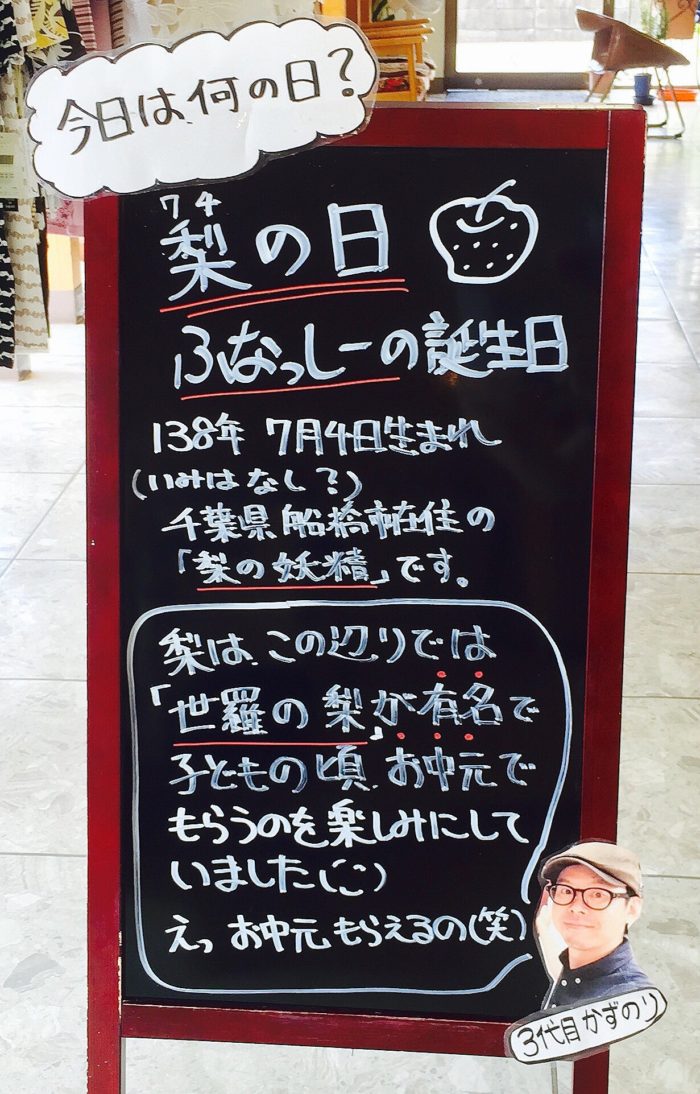 今日は、何の日?
7 4
梨の日
ふなっしーの誕生日
138年 7月4日生まれ
(いみはなし?)
千葉県船橋市在住の
「梨の妖精」です。
梨は、この辺りでは
「世羅の梨」が有名で
子どもの頃、お中元で
もらうのを楽しみにして
いました(こ)
えっ お中元もらえるの(笑)
3代目 かずのり